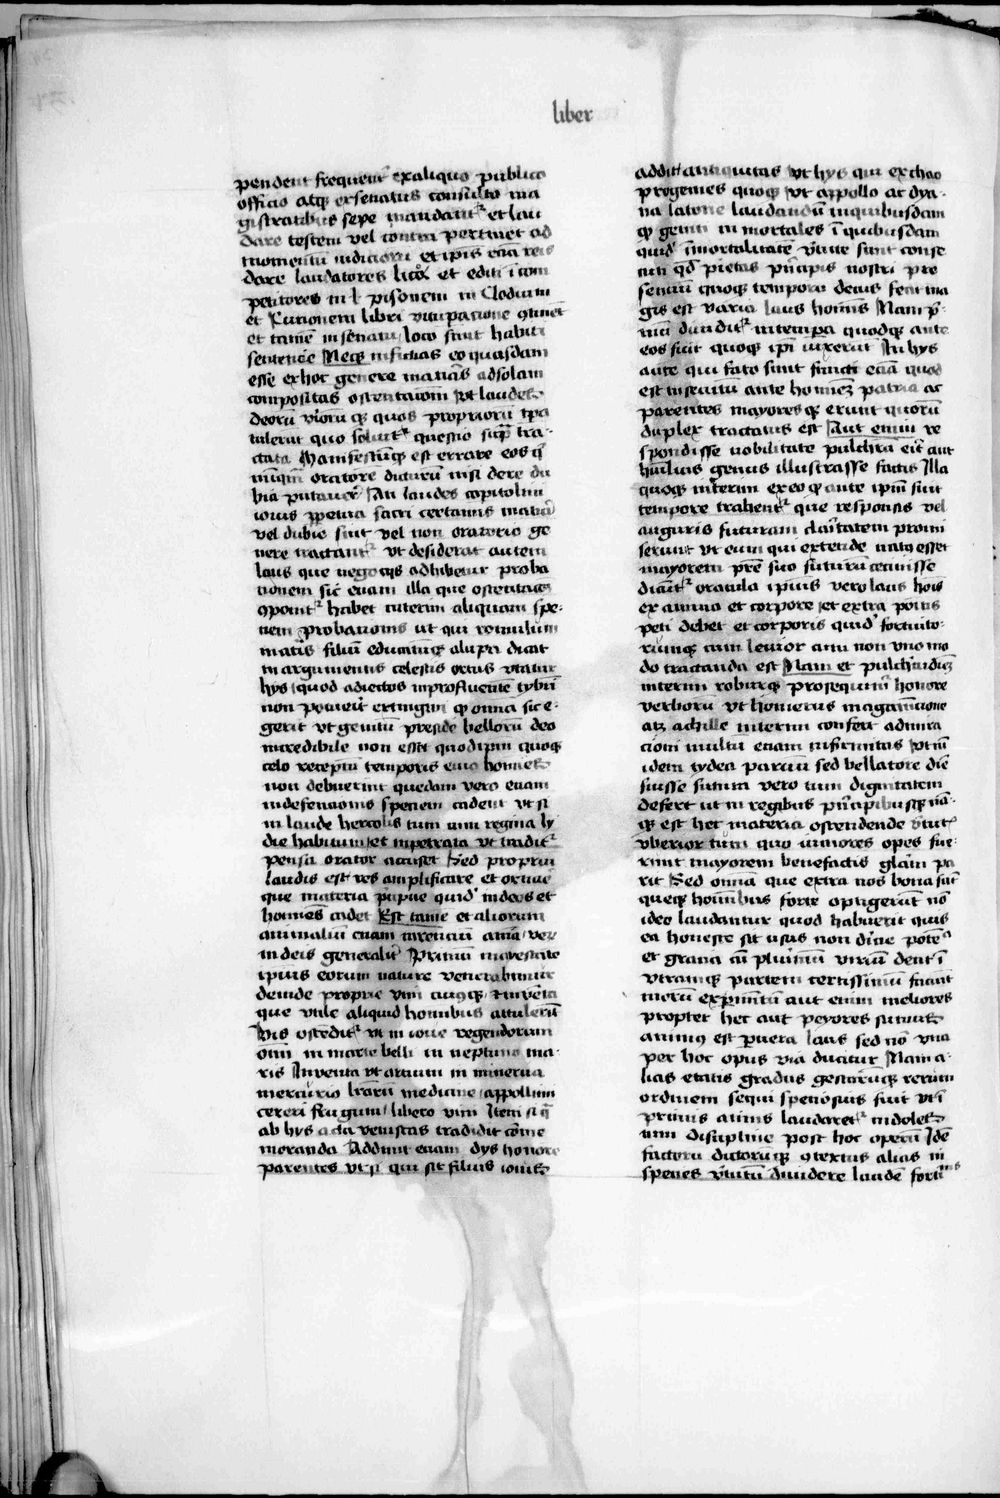 liber
pendent frequenter ex aliquo publico
officio atq; ex senatus consulto ma
gistratibus sepe mandantr et lau
dare testem vel contra pertinet ad
momentū iudiciorū et ipīs etiā reis
dare laudatores licꝫ et editi ī com
petitores in l pisonem in Clodium
et Curionem libri vituperacione ꝯtinēt
et tamē in senatu loco sunt habiti
sentencie Neq; inficias eo quasdam
esse ex hoc genere materias ad solam
compositas ostentacionē vt laudes
deorū virorū q; quos propriorū tpa
tulerūt quo soluitr questio supra tra
ctata Manifestūq; est errare eos q̄
nūqm̄ oratorē dicturū nisi de re du
bia putauerūt An laudes capitolini
iouis ꝑpetua sacri certaminis materia
vel dubie sunt vel non oratorio ge
nere tractantr vt desiderat autem
laus que negocijs adhibetur proba
tionem sic etiam illa que ostentacōi
ꝯponitr habet interim aliquam spe
ciem probationis ut qui romulum
martis filiū educatūq; a lupa dicat
in argumentis celestis ortus vtatur
hys quod adiectus in profluentē tybri
non potuerit extingui q omnia sic e
gerit vt genitū preside bellorū deo
incredibile non esset quod ipm̄ quoq;
celo receptū temporis eius homies
non debuerint quedam vero etiam
in defensionis speciem cadent vt si
in laude herculis cum cum regina ly
die habitum et imperata vt traditr
pensa orator accuset Sed propriū
laudis est res amplificare et ornare
que materia p̄cipue quid' in deos et
homies cadet Est tamē et aliorum
animaliū etiam carentiū aīa ver
in deis generalit' Primū maiestatē
ipius eorum nature venerabimur
deinde proprie vim cuiusq; et inuēta
que vtile aliquid hominibus attulerūt
Vis ostēditr vt in ioue regendorum
omī in marte belli in neptuno ma
ris Inuenta vt artium in minerua
mercurio lrārū medicine appollini
cereri frugum libero vini Item si q̄
ab hys acta vetustas tradidit cōme
moranda Addunt etiam dys honore
parentes vt si qui sit filius iouis
addit antiquitas vt hys qui ex chao
progenies quoq; vt appollo ac dya
na latone laudandū in quibusdam
q geniti in mortales ī quibusdam
quid' īmortalitatē v̄tute sunt conse
cuti qd pietas prīcipis nostri pre
sentiū quoq; temporū decus fecit ma
gis est varia laus homīs Nam p̄
mū diuiditr in tempa quodq; ante
eos fuit quoq; ipi vixerūt In hys
autē qui fato sunt functi etiā quod
est insecutū ante hominē patria ac
parentes mayores q; erunt quorū
duplex tractatus est Aut enim re
spondisse nobilitate pulchrū erit aut
humilius genus illustrasse factis Illa
quoq; interim ex eo q ante ipm̄ fuit
tempore trahentr que responsis vel
auguriis futuram claritatem promi
serunt vt eum qui extende natꝰ esset
mayorem prē suo futurū cecinisse
dicūtr oracula ipius vero laus hoīs
ex animo et corpore et extra positis
peti debet et corporis quid' fortuito
rumq; cum leuior tum non vno mo
do tractanda est Nam et pulchritudinē
interim roburq; prosequimur honore
verborū vt homerus in agamēnone
atq; achille interim confert admira
cioni multū etiam infirmitas vt cū
idem tydea paruū sed bellatorē dicit
fuisse fortuna vero tum dignitatem
defert ut in regibus prīcipibusq; nā
q; est hec materia ostendende v̄tutis
vberior tum quo minores opes fue
rint mayorem benefactis glām pa
rit Sed omnīa que extra nos bona sūt
queq; hominibus forte optigerūt nō
ideo laudantur quod habuerit quis
ea honeste sit usus non diuīe potētie
et gratia cū plurimū viriū dent ī
vtramq; partem certissimū faciūt
morū experimētū aut enim meliores
propter hec aut peyores sumus
animus est p̄uera laus sed nō vna
per hoc opus via ducitur Nam a
lias etatis gradus gestarūq; rerum
ordinem sequi speciosius fuit vt ī
primis annis laudaretr indoles
tum discipline post hoc operū Idē
factorū dictorūq; ꝯtextus alias in
species v̄tutū diuidere laudē fortitudinis